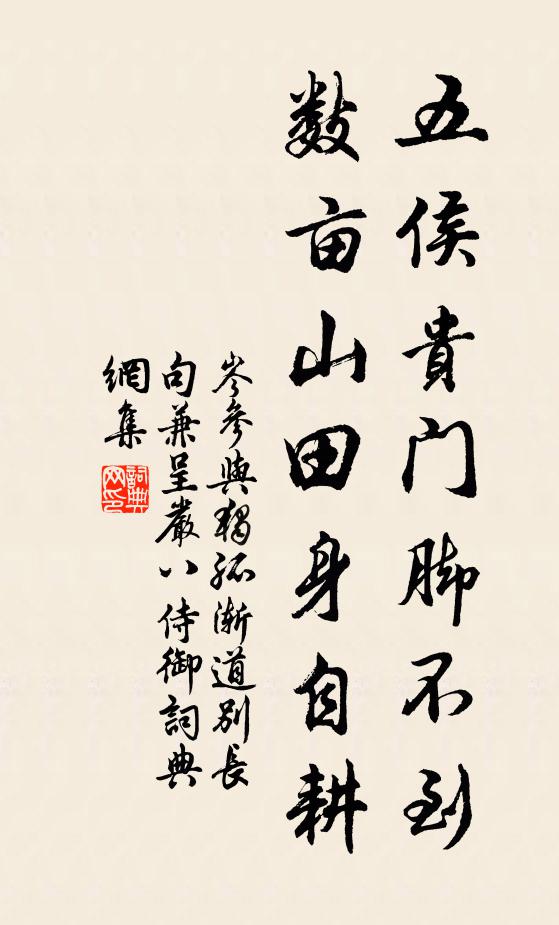 五侯貴门脚不到
数亩山田身自耕
岑參與獨孤漸道別長
句兼呈嚴八侍御詞典
網集
詞典
网印